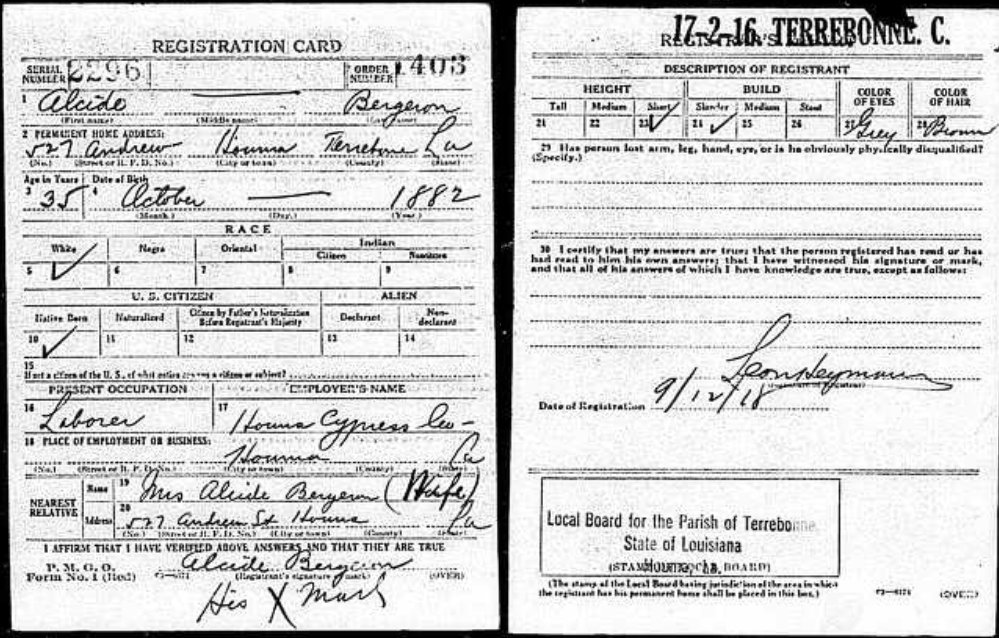 REGISTRATION CARD
SERIAL NUMBER 2296 ORDER NUMBER 1403
1 Alcide Bergeron
(First name) (Middle name) (Last name)
2 PERMANENT HOME ADDRESS:
527 Andrew Houma Terrebone La
(No.) (Street or R. F. D. No.) (City or town) (County) (State)
Age in Years Date of Birth
3 35 4 October — 1882
(Month.) (Day.) (Year.)
RACE
White Negro Oriental Indian
Citizen Noncitizen
5 ✓ 6 7 8 9
U. S. CITIZEN ALIEN
Native Born Naturalized Citizen by Father's Naturalization Before Registrant's Majority Declarant Non-declarant
10 ✓ 11 12 13 14
15
If not a citizen of the U. S., of what nation are you a citizen or subject?
PRESENT OCCUPATION EMPLOYER'S NAME
16 Laborer 17 Houma Cypress Co-
18 PLACE OF EMPLOYMENT OR BUSINESS:
Houma La
(No.) (Street or R. F. D. No.) (City or town) (County) (State)
NEAREST RELATIVE Name 19 Mrs Alcide Bergeron (Wife)
Address 20 527 Andrew St Houma La
(No.) (Street or R. F. D. No.) (City or town) (County) (State)
I AFFIRM THAT I HAVE VERIFIED ABOVE ANSWERS AND THAT THEY ARE TRUE
P. M. G. O.
Form No. 1 (Red) Alcide Bergeron
(Registrant's signature or mark) (OVER)
His X Mark
17-2-16. TERREBONNE. C.
REGISTRAR'S
DESCRIPTION OF REGISTRANT
HEIGHT BUILD COLOR OF EYES COLOR OF HAIR
Tall Medium Short Slender Medium Stout
21 22 23 ✓ 24 ✓ 25 26 27 Grey 28 Brown
29 Has person lost arm, leg, hand, eye, or is he obviously physically disqualified?
(Specify.)
30 I certify that my answers are true; that the person registered has read or has
had read to him his own answers; that I have witnessed his signature or mark,
and that all of his answers of which I have knowledge are true, except as follows:
Leon Heymann
(Signature of Registrar)
Date of Registration 9/12/18
Local Board for the Parish of Terrebonne,
State of Louisiana
(STAMP OF LOCAL BOARD)
Houma, La.
(The stamp of the Local Board having jurisdiction of the area in which
the registrant has his permanent home shall be placed in this box.)
(OVER)